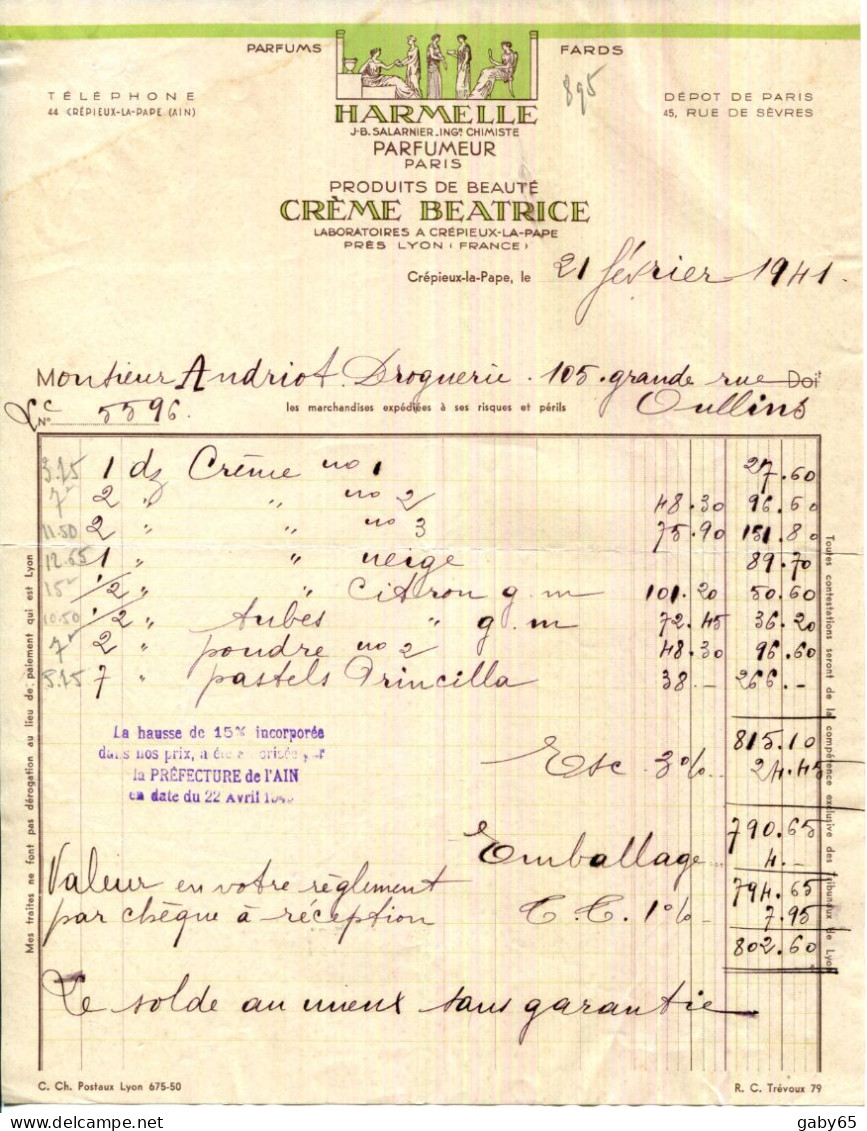 PARFUMS FARDS
895
TÉLÉPHONE
44 CRÉPIEUX-LA-PAPE (AIN)
DÉPOT DE PARIS
45, RUE DE SÈVRES
HARMELLE
J-B. SALARNIER_INGR CHIMISTE
PARFUMEUR
PARIS
PRODUITS DE BEAUTÉ
CRÈME BEATRICE
LABORATOIRES A CRÉPIEUX-LA-PAPE
PRÈS LYON (FRANCE)
Crépieux-la-Pape, le 21 février 1941.
Monsieur Andriot. Droguerie. 105. grande rue Doit
No 5596. les marchandises expédiées à ses risques et périls Oullins
3.25 1 dz Crême no 1 27.60
7 2 " " no 2 48.30 96.60
11.50 2 " " no 3 75.90 151.80
12.65 1 " " neige 89.70
15 1/2 " " Citron g.m 101.20 50.60
10.50 1/2 " tubes " g.m 72.45 36.20
7 2 " poudre no 2 48.30 96.60
5.25 7 " pastels Princilla 38.- 266.-
815.10
Esc 3% 24.45
La hausse de 15% incorporée
dans nos prix, a été autorisée par
la PRÉFECTURE de l'AIN
en date du 22 Avril
790.65
Emballage 4.-
794.65
Valeur en votre règlement
par chèque à réception
T.C. 1% 7.95
802.60
Le solde au mieux sans garantie
Mes traites ne font pas dérogation au lieu de paiement qui est Lyon
Toutes contestations seront de la compétence exclusive des Tribunaux de Lyon
C. Ch. Postaux Lyon 675-50
R. C. Trévoux 79
gaby65